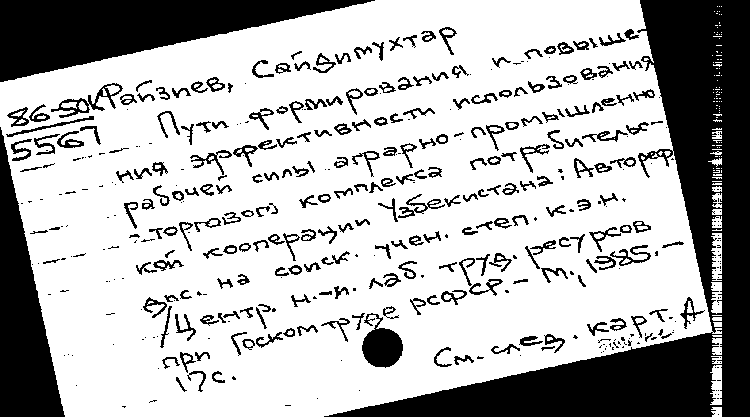 86-50к Файзиев, Сайдимухтар
5567
Пути формирования и повыше-
ния эффективности использования
рабочей силы аграрно-промышленно
-торгового комплекса потребительс-
кой кооперации Узбекистана: Автореф.
дис. на соиск. учен. степ. к.э.н.
/Центр. н.-и. лаб. труд. ресурсов
при Госкомтруде РСФСР.- М., 1985.-
17с.
См. след. карт. А